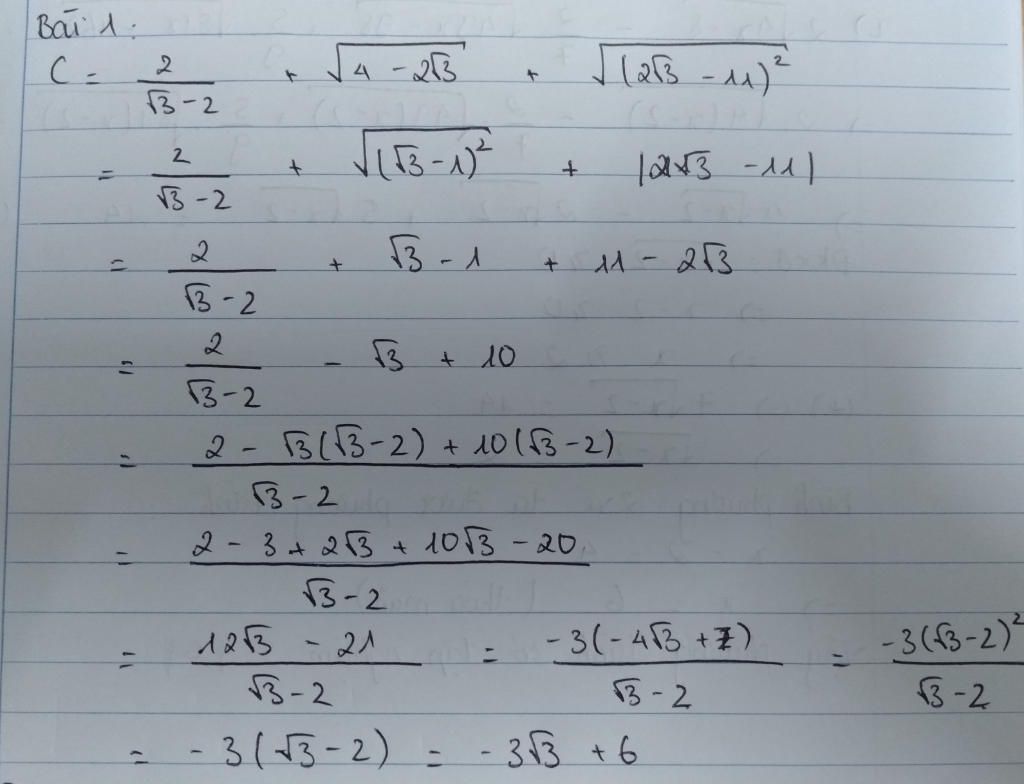 Bài 1:
C = 2/(√3 - 2) + √(4 - 2√3) + √((2√3 - 11)²)
= 2/(√3 - 2) + √((√3 - 1)²) + |2√3 - 11|
= 2/(√3 - 2) + √3 - 1 + 11 - 2√3
= 2/(√3 - 2) - √3 + 10
= (2 - √3(√3 - 2) + 10(√3 - 2))/(√3 - 2)
= (2 - 3 + 2√3 + 10√3 - 20)/(√3 - 2)
= (12√3 - 21)/(√3 - 2) = (-3(-4√3 + 7))/(√3 - 2) = (-3(√3 - 2)²)/(√3 - 2)
= -3(√3 - 2) = -3√3 + 6